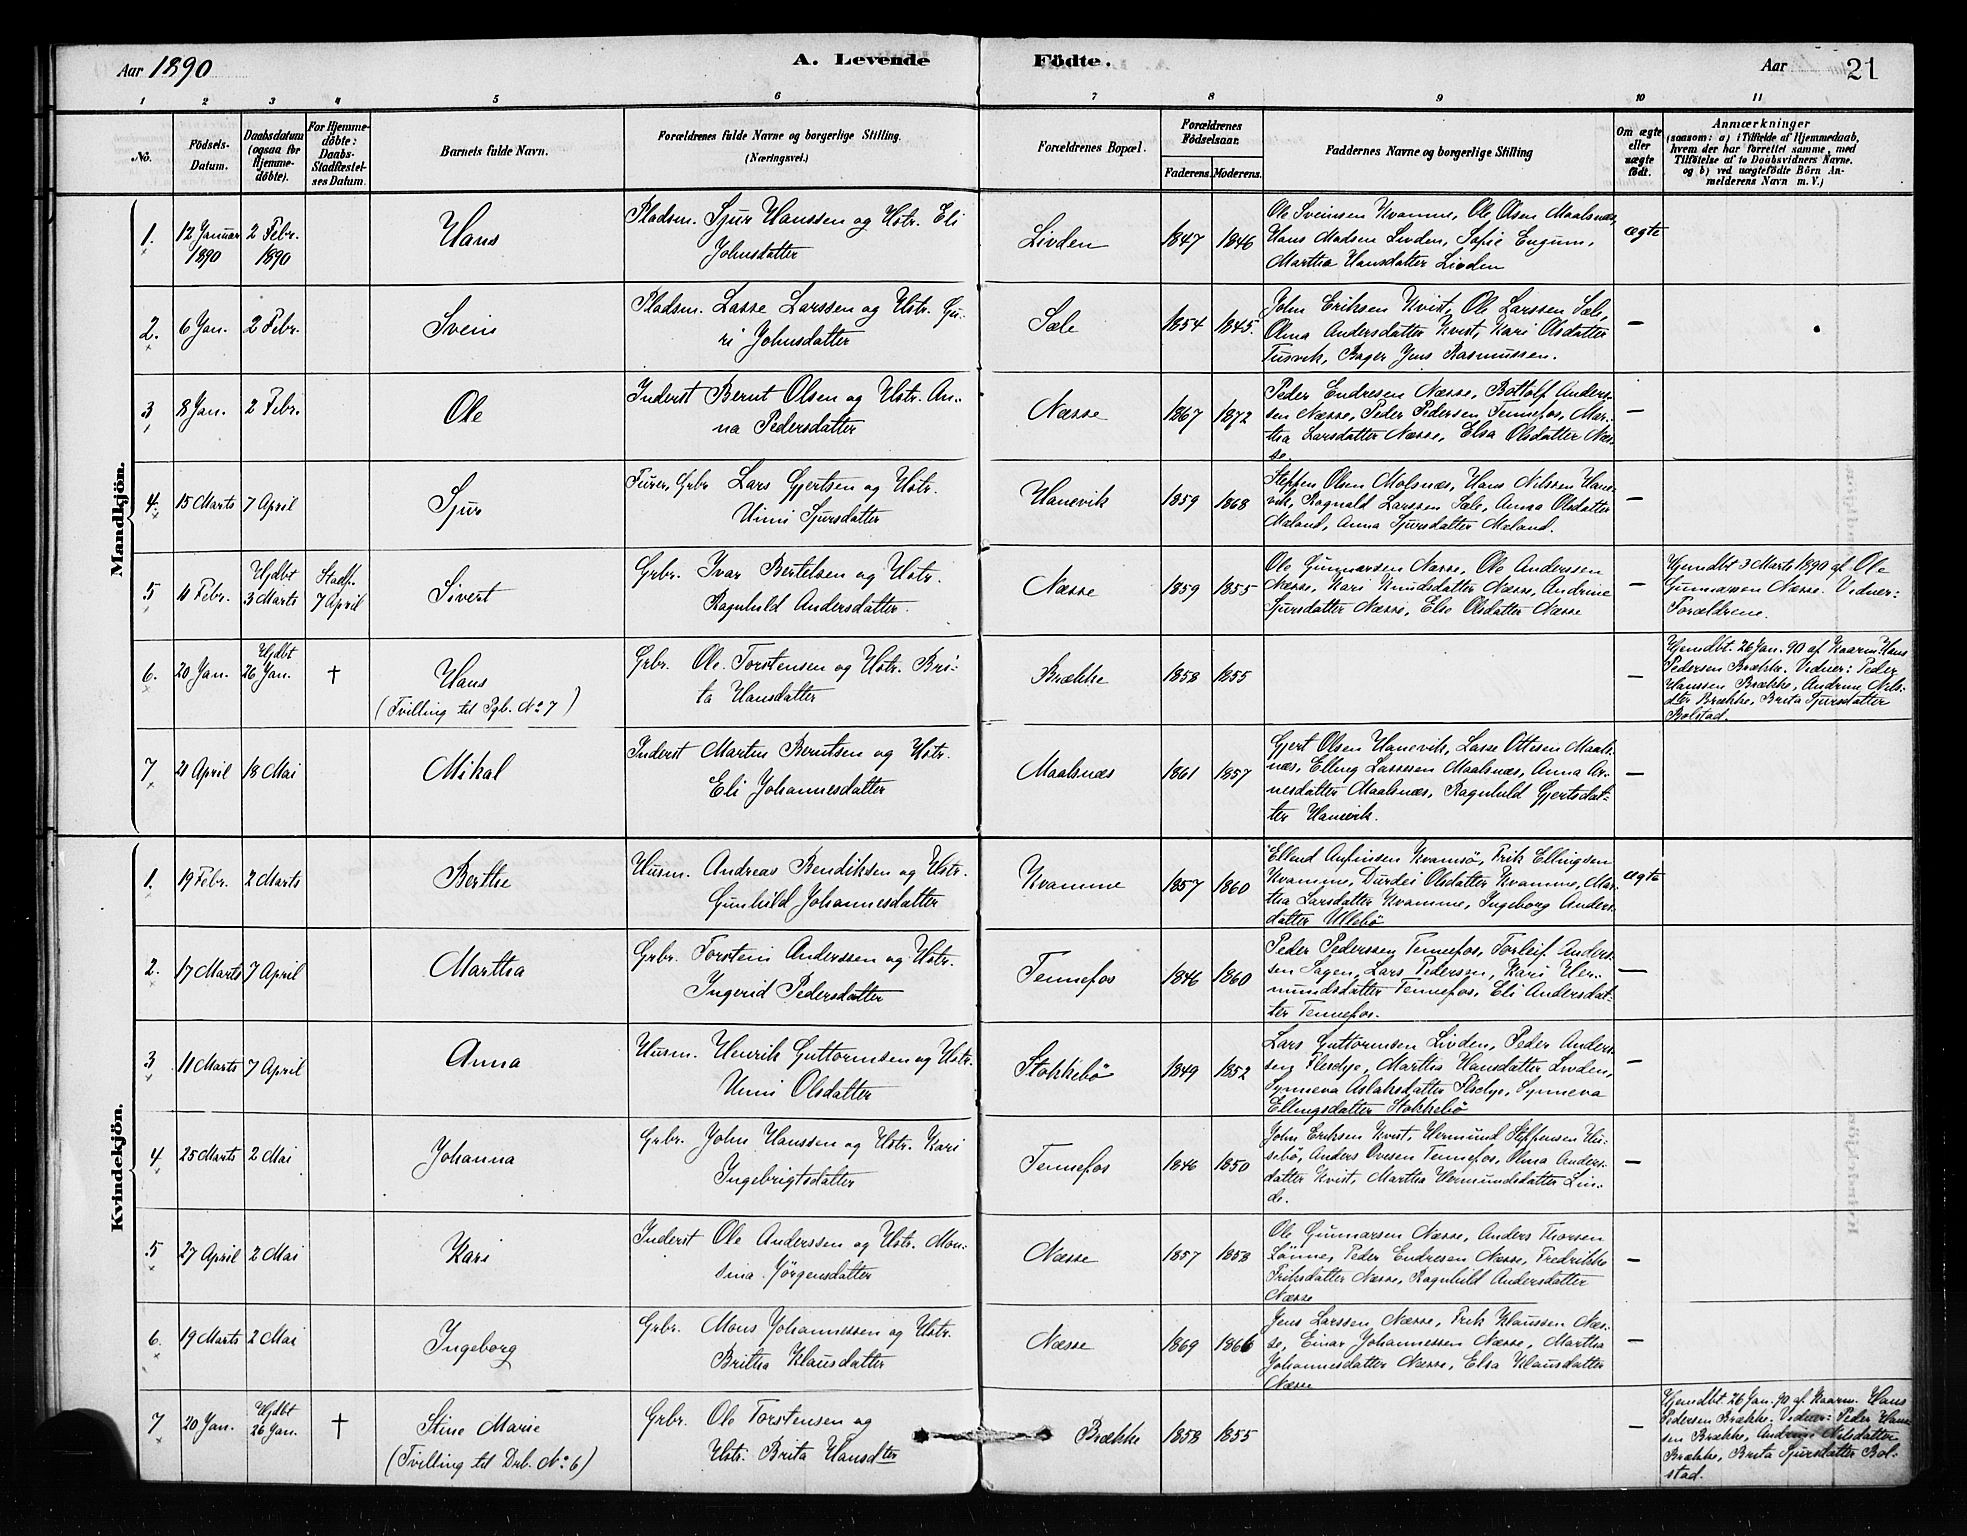 Aar 1890
A. Levende Födte.
Aar
21
1 2 3 4 5 6 7 8 9 10 11
No.
Födsels-Datum.
Daabsdatum (ogsaa for Hjemme-döbte).
For Hjemme-döbte: Daabs-Stadfæstel-ses Datum.
Barnets fulde Navn.
Forældrenes fulde Navne og borgerlige Stilling. (Næringsvei.)
Forældrenes Bopæl.
Forældrenes Födselsaar.
Faderens. Moderens.
Faddernes Navne og borgerlige Stilling
Om ægte eller uægte födt.
Anmærkninger
(saasom: a) i Tilfælde af Hjemmedaab, hvem der har forrettet samme, med Tilföielse af to Daabsvidners Navne. og b) ved uægtefödte Börn An-melderens Navn m. V.)
Mandkjön.
1. 12 Januar 1890 2 Febr. 1890 Hans
Pladsm. Sjur Hanssen og Hstr. Eli
Johnsdatter
Livden 1847 1846
Ole Sveinsen Kvamme, Ole Olsen Maalsnæs,
Hans Madsen Livden, Sofie Engum,
Martha Hansdatter Livden
ægte
2. 6 Jan. 2 Febr. Svein
Pladsm. Lasse Larssen og Hstr. Gu-
ri Johnsdatter
Sæle 1854 1845.
John Eriksen Kvist, Ole Larssen Sæle,
Olina Andersdatter Kvist, Kari Olsdatter
Tusvik, Bager Jens Rasmussen.
—
3 8 Jan. 2 Febr. Ole
Inderst Bernt Olsen og Hstr. An-
na Pedersdatter
Næsse 1867 1872
Peder Endresen Næsse, Bottolf Anders-
sen Næsse, Peder Pedersen Tennefos, Mar-
tha Larsdatter Næsse, Elsa Olsdatter Næs-
se.
—
4. 15 Marts 7 April Sjur
Furer, Grbr Lars Gjertsen og Hstr.
Unni Sjursdatter
Hanevik 1859 1868
Steffen Olsen Molsnæs, Hans Nilssen Hane-
vik, Ragnald Larssen Sæle, Anna Olsdatter
Mæland, Anna Sjursdatter Mæland.
—
5 11 Febr. Hjdbt 3 Marts Stadf. 7 April Sivert
Grbr. Ivar Bertelsen og Hstr.
Ragnhild Andersdatter.
Næsse 1859 1855
Ole Gunnarsen Næsse, Ole Anderssen
Næsse, Kari Knudsdatter Næsse, Andrine
Sjursdatter Næsse, Else Olsdatter Næsse
—
Hjemdbt 3 Marts 1890 af Ole
Gunnarsen Næsse. Vidner:
Forældrene.
6. 20 Jan. Hjdbt 26 Jan. † Hans
(Tvilling til Pgb. No 7)
Grbr. Ole Torstensen og Hstr. Bri-
ta Hansdatter
Brække 1858 1855
—
Hjemdbt. 26 Jan. 90 af Kaarm. Hans
Pedersen Brække. Vidner: Peder
Hanssen Brække, Andrine Nils-
dtr Brække, Brita Sjursdatter
Bolstad.
7 21 April 18 Mai Mikal
Inderst Martin Berntsen og Hstr.
Eli Johannesdatter
Maalsnæs 1861 1857
Gjert Olsen Hanevik, Lasse Ottesen Maals-
næs, Elling Lassesen Maalsnæs, Anna Ar-
nesdatter Maalsnæs, Ragnhild Gjertsdat-
ter Hanevik.
—
Kvindekjön.
1. 19 Febr. 2 Marts Berthe
Husm. Andreas Bendiksen og Hstr.
Gunhild Johannesdatter
Kvamme 1857 1860
Ellend Anfinsen Kvamsö, Erik Ellingsen
Kvamme, Durdei Olsdatter Kvamme, Mar-
tha Larsdatter Kvamme, Ingeborg Anders-
datter Ullebö
ægte
2. 17 Marts 7 April Martha
Grbr. Torstein Anderssen og Hstr.
Ingerid Pedersdatter
Tennefos 1846 1860
Peder Pederssen Tennefos, Torleif Anders-
sen Sagen, Lars Pedersen, Kari Her-
mundsdatter Tennefos, Eli Andersdat-
ter Tennefos.
—
3 11 Marts 7 April Anna
Husm. Henrik Guttormsen og Hstr.
Unni Olsdatter
Stokkebö 1849 1852
Lars Guttormsen Livden, Peder Anders-
sen Flesdye, Martha Hansdatter Livden,
Synneva Aslaksdatter Flesdye, Synneva
Ellingsdatter Stokkebö
—
4 25 Marts 2 Mai Johanna
Grbr. John Hanssen og Hstr. Kari
Ingebrigtsdatter
Tennefos 1846 1850
John Eriksen Kvist, Hermund Steffensen Hu-
sebö, Anders Ovesen Tennefos, Olina Anders-
datter Kvist, Martha Hermundsdatter Lin-
de.
—
5 27 April 2 Mai Kari
Inderst Ole Anderssen og Hstr. Mon-
sina Jörgensdatter
Næsse 1857 1858
Ole Gunnarsen Næsse, Anders Thorsen
Lönne, Peder Endresen Næsse, Fredrikke
Eriksdatter Næsse, Ragnhild Andersdatter
Næsse
—
6. 19 Marts 2 Mai Ingeborg
Grbr. Mons Johannessen og Hstr.
Britha Klausdatter
Næsse 1869 1866
Jens Larssen Næsse, Erik Klaussen Næs-
se, Einar Johannessen Næsse, Martha
Johannesdatter Næsse, Elsa Klausdatter
Næsse
—
7 20 Jan. Hjdbt 26 Jan. † Stine Marie
(Tvilling til Drb. No 6)
Grbr. Ole Torstensen og
Hstr. Brita Hansdter
Brække 1858 1855
—
Hjemdbt. 26 Jan. 90 af Kaarm. Hans
Pedersen Brække. Vidner: Peder Hans-
sen Brække, Andrine Nilsdatter
Brække, Brita Sjursdatter Bol-
stad.